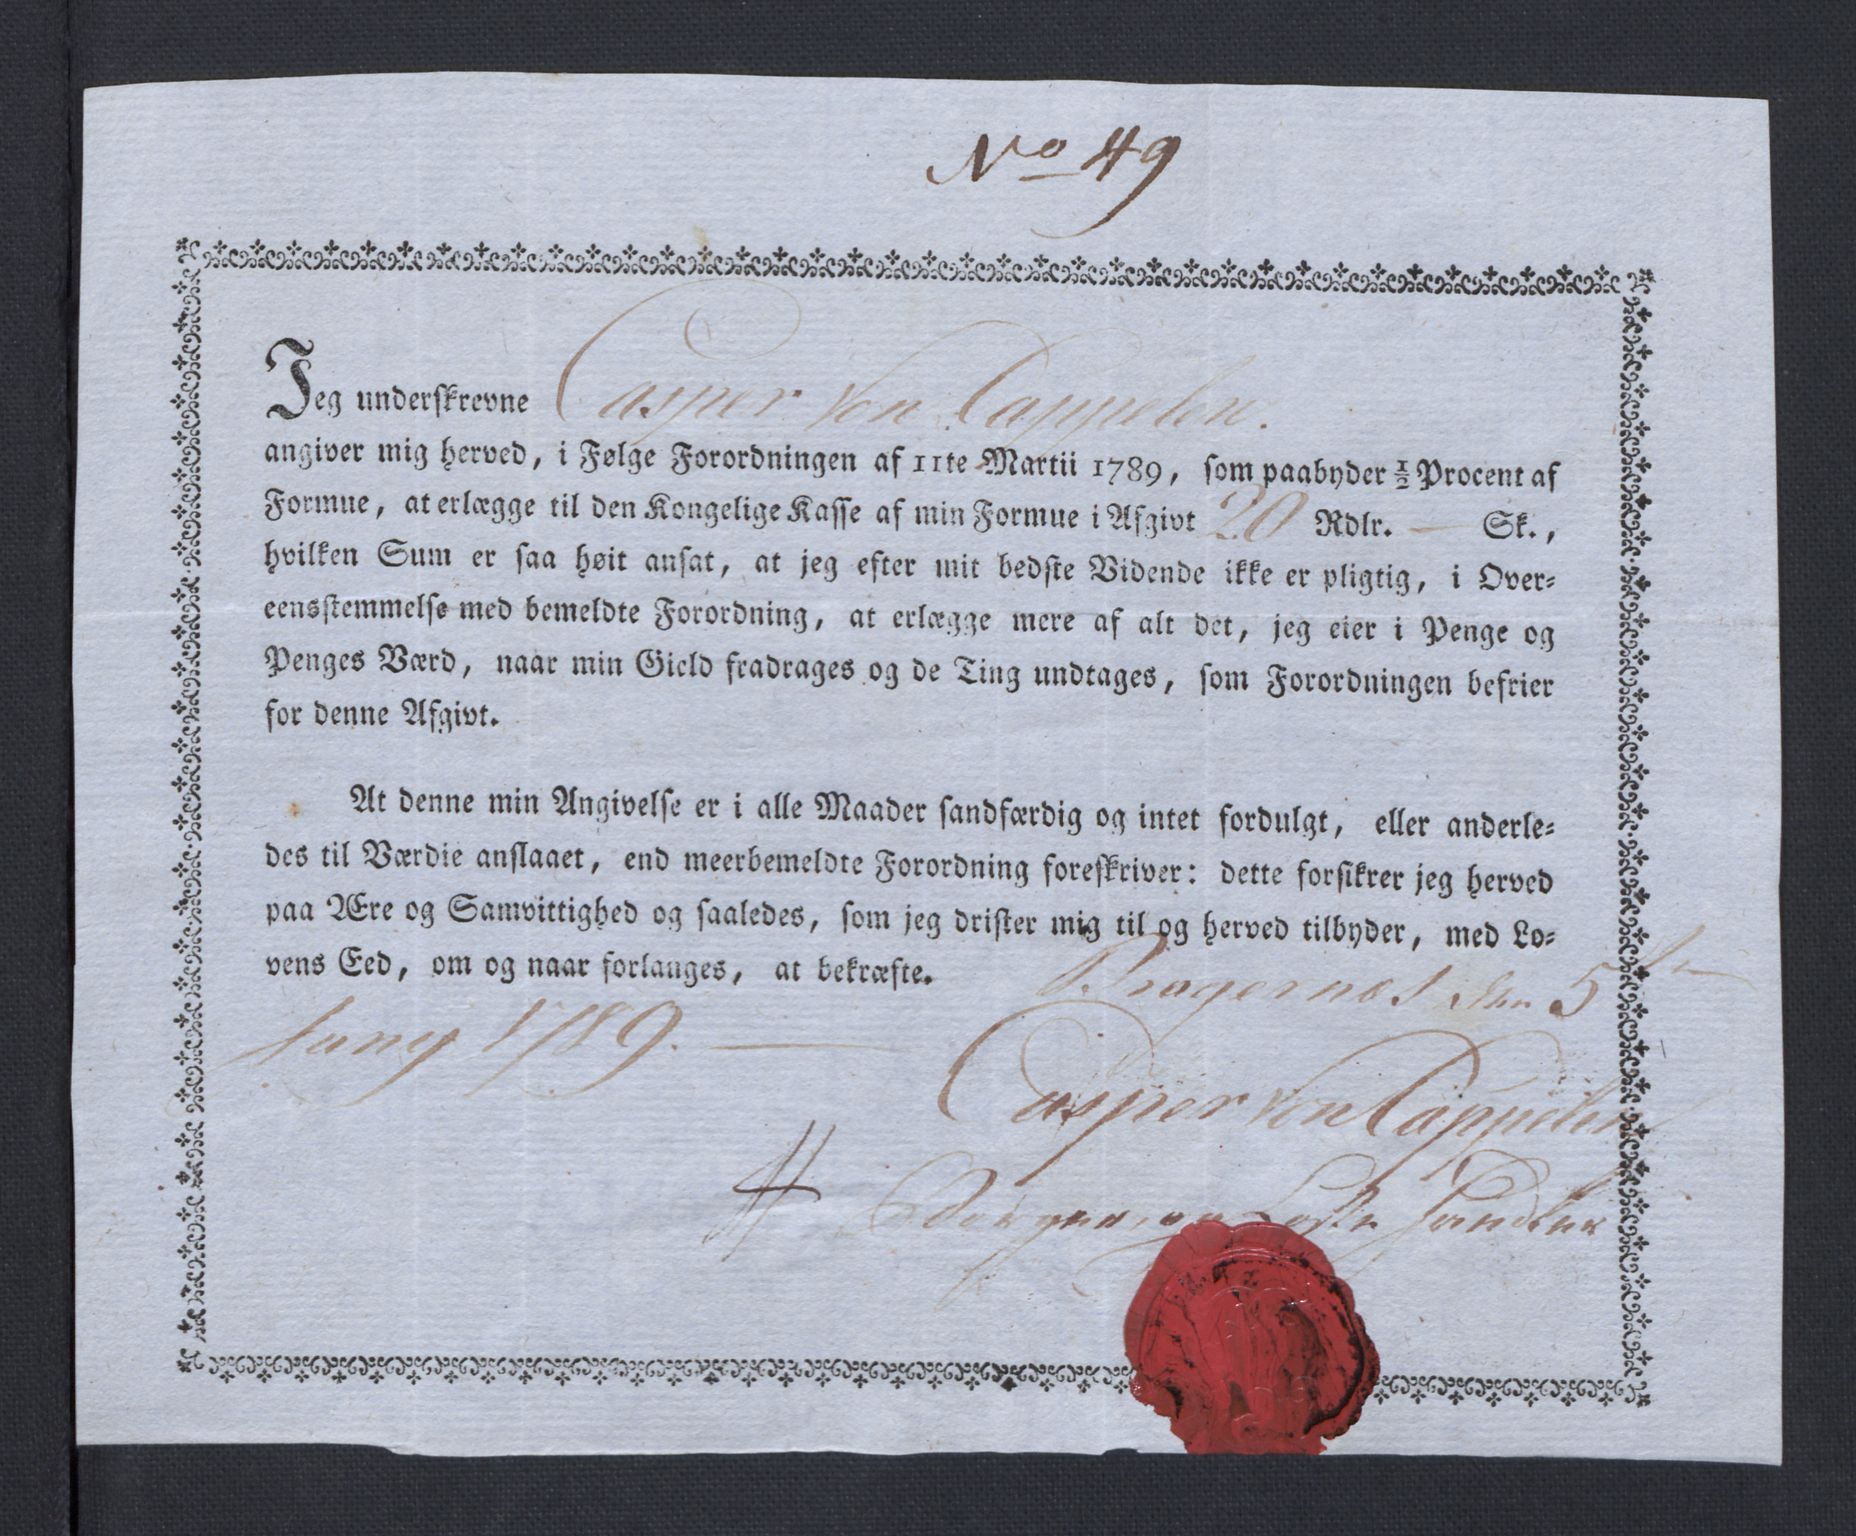 No 49
Jeg underskrevne Casper von Cappelen.
angiver mig herved, i Følge Forordningen af 11te Martii 1789, som paabyder ½ Procent af
Formue, at erlægge til den Kongelige Kasse af min Formue i Afgivt 20 Rdlr. — Sk.,
hvilken Sum er saa høit ansat, at jeg efter mit bedste Vidende ikke er pligtig, i Over-
eensstemmelse med bemeldte Forordning, at erlægge mere af alt det, jeg eier i Penge og
Penges Værd, naar min Gield fradrages og de Ting undtages, som Forordningen befrier
for denne Afgivt.
At denne min Angivelse er i alle Maader sandfærdig og intet fordulgt, eller anderle-
des til Værdie anslaaet, end meerbemeldte Forordning foreskriver: dette forsikrer jeg herved
paa Ære og Samvittighed og saaledes, som jeg drister mig til og herved tilbyder, med Lo-
vens Eed, om og naar forlanges, at bekræfte. Bragernes den 5te
Juny 1789. —
Casper von Cappelen
Borger og